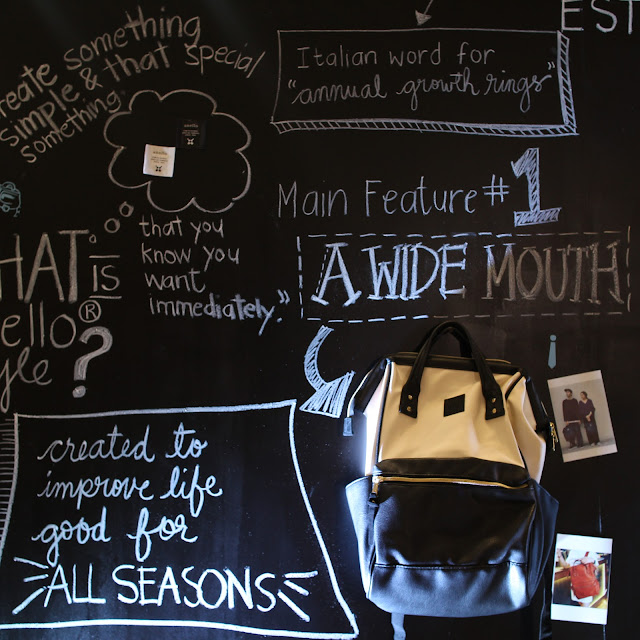 EST
Italian word for
"annual growth rings"
create something
simple & that special
something
that you
know you
want
immediately."
Main Feature #1
A WIDE MOUTH
IS
®
?
created to
improve life
good for
ALL SEASONS